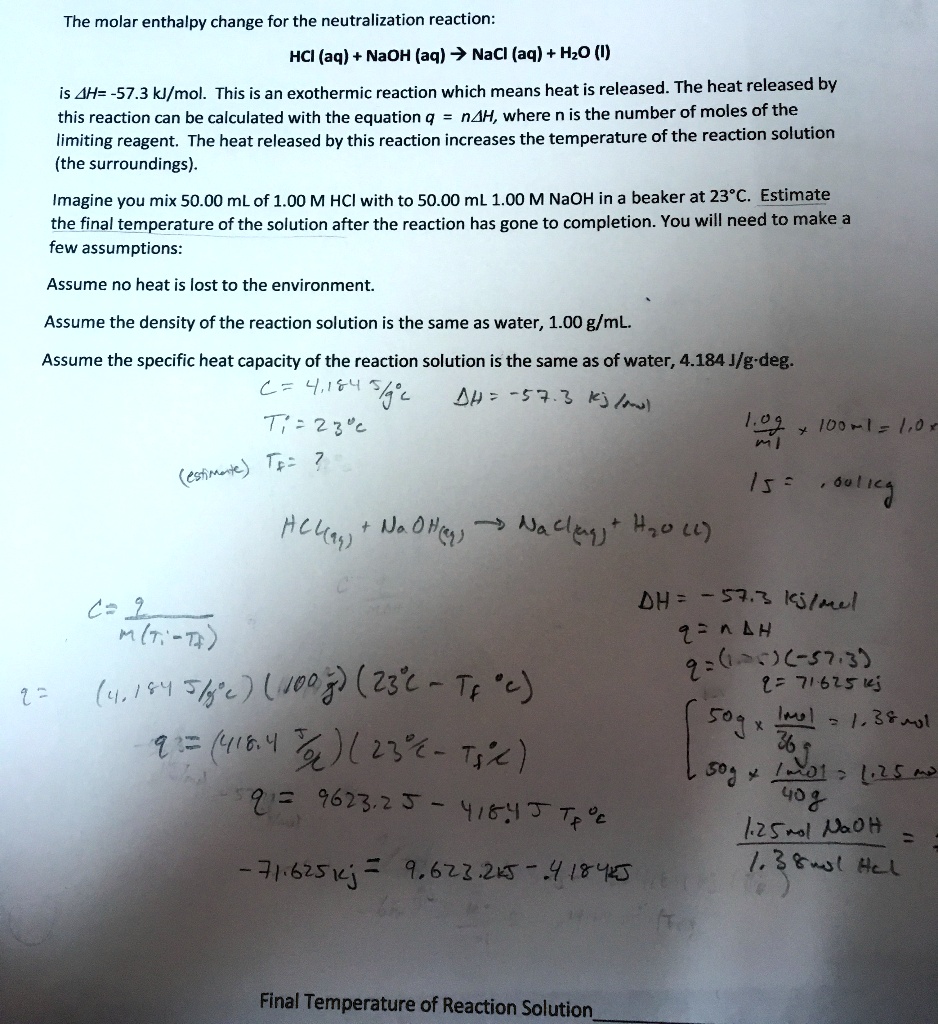 The molar enthalpy change for the neutralization reaction:
HCl (aq) + NaOH (aq) → NaCl (aq) + H₂O (l)
is ΔH= -57.3 kJ/mol. This is an exothermic reaction which means heat is released. The heat released by
this reaction can be calculated with the equation q = nΔH, where n is the number of moles of the
limiting reagent. The heat released by this reaction increases the temperature of the reaction solution
(the surroundings).
Imagine you mix 50.00 mL of 1.00 M HCl with to 50.00 mL 1.00 M NaOH in a beaker at 23°C. Estimate
the final temperature of the solution after the reaction has gone to completion. You will need to make a
few assumptions:
Assume no heat is lost to the environment.
Assume the density of the reaction solution is the same as water, 1.00 g/mL.
Assume the specific heat capacity of the reaction solution is the same as of water, 4.184 J/g-deg.
C = 4.184 J/g°C ΔH = -57.3 kJ/mol
Ti = 23°C
1.0g/ml x 100ml = 1.0
(estimate) Tf = ?
1g = .001kg
HCl(aq) + NaOH(aq) → NaCl(aq) + H₂O (l)
C = q / M(Ti - Tf)
ΔH = -57.3 kJ/mol
q = n ΔH
q = (-57.3)
q = 71.625 kJ
q = (4.184 J/g°C) (100g) (23°C - Tf °C)
50g x 1mol / 36g = 1.38 mol
q = (418.4 J/°C) (23°C - Tf°C)
50g x 1mol / 40g = 1.25 mo
q = 9623.2 J - 418.4 J Tf °C
1.25 mol NaOH / 1.38 mol HCl =
-71.625 kJ = 9.623.2kJ - .4184kJ
Final Temperature of Reaction Solution